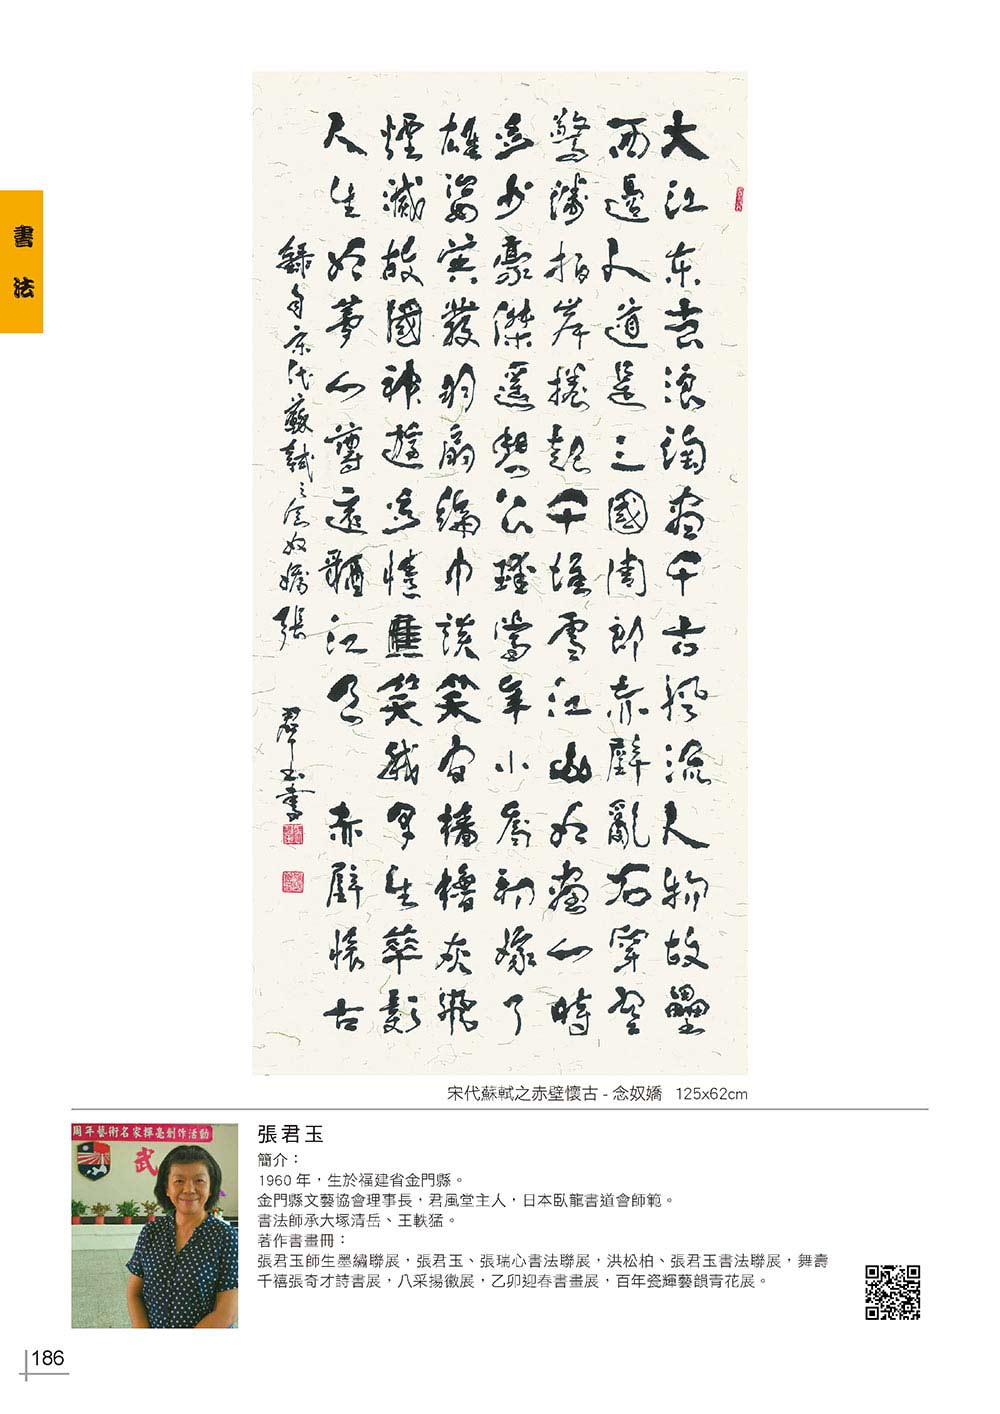 書法
大江東去浪淘盡千古風流人物故壘
西邊人道是三國周郎赤壁亂石穿空
驚濤拍岸捲起千堆雪江山如畫一時
多少豪傑遙想公瑾當年小喬初嫁了
雄姿英發羽扇綸巾談笑間檣櫓灰飛
煙滅故國神遊多情應笑我早生華髮
人生如夢一樽還酹江月 赤壁懷古
錄自宋代蘇軾之念奴嬌張 君玉書
宋代蘇軾之赤壁懷古 - 念奴嬌 125x62cm
周年藝術名家揮毫創作活動
武
張君玉
簡介：
1960 年，生於福建省金門縣。
金門縣文藝協會理事長，君風堂主人，日本臥龍書道會師範。
書法師承大塚清岳、王軼猛。
著作書畫冊：
張君玉師生墨繡聯展，張君玉、張瑞心書法聯展，洪松柏、張君玉書法聯展，舞壽
千禧張奇才詩書展，八采揚徽展，乙卯迎春書畫展，百年瓷輝藝韻青花展。
186